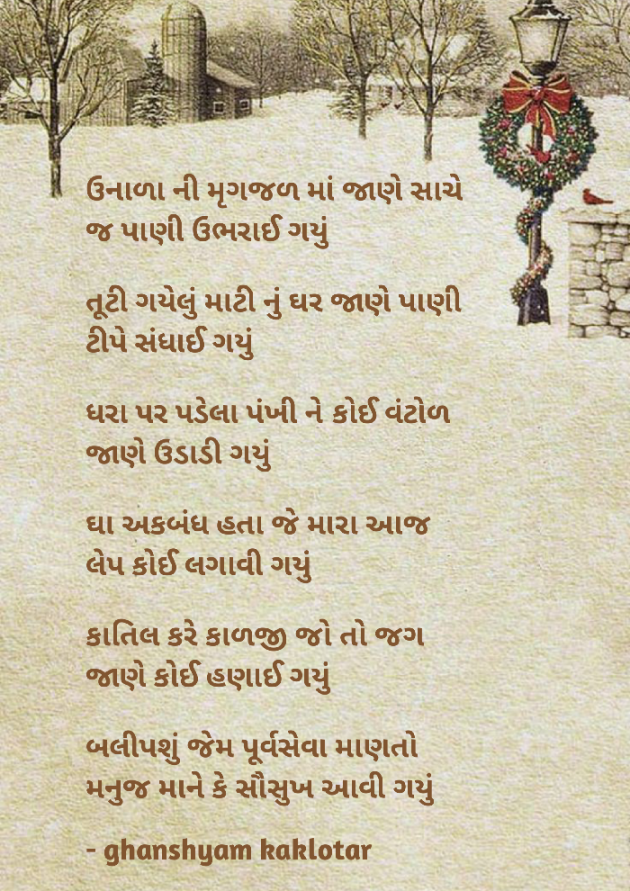 ઉનાળા ની મૃગજળ માં જાણે સાચે
જ પાણી ઉભરાઈ ગયું
તૂટી ગયેલું માટી નું ઘર જાણે પાણી
ટીપે સંધાઈ ગયું
ધરા પર પડેલા પંખી ને કોઈ વંટોળ
જાણે ઉડાડી ગયું
ઘા અકબંધ હતા જે મારા આજ
લેપ કોઈ લગાવી ગયું
કાતિલ કરે કાળજી જો તો જગ
જાણે કોઈ હણાઈ ગયું
બલીપશું જેમ પૂર્વસેવા માણતો
મનુજ માને કે સૌસુખ આવી ગયું
- ghanshyam kaklotar